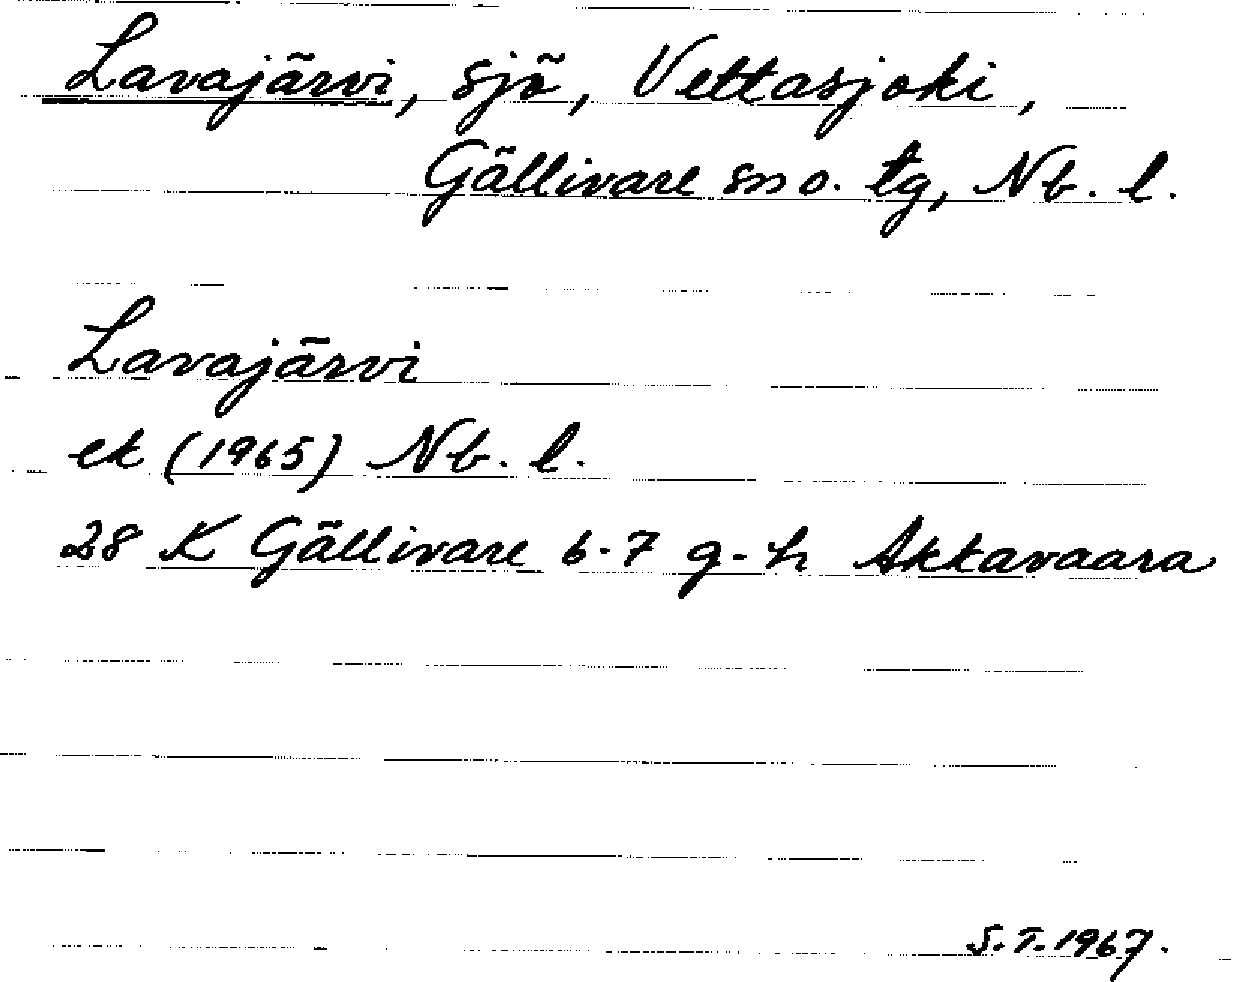 Lavajärvi, sjö, Vettasjoki,
Gällivare sn o. tg, Nb. l.
Lavajärvi
ek (1965) Nb. l.
28 K Gällivare 6-7 g-h Akkavaara
S.T. 1967.